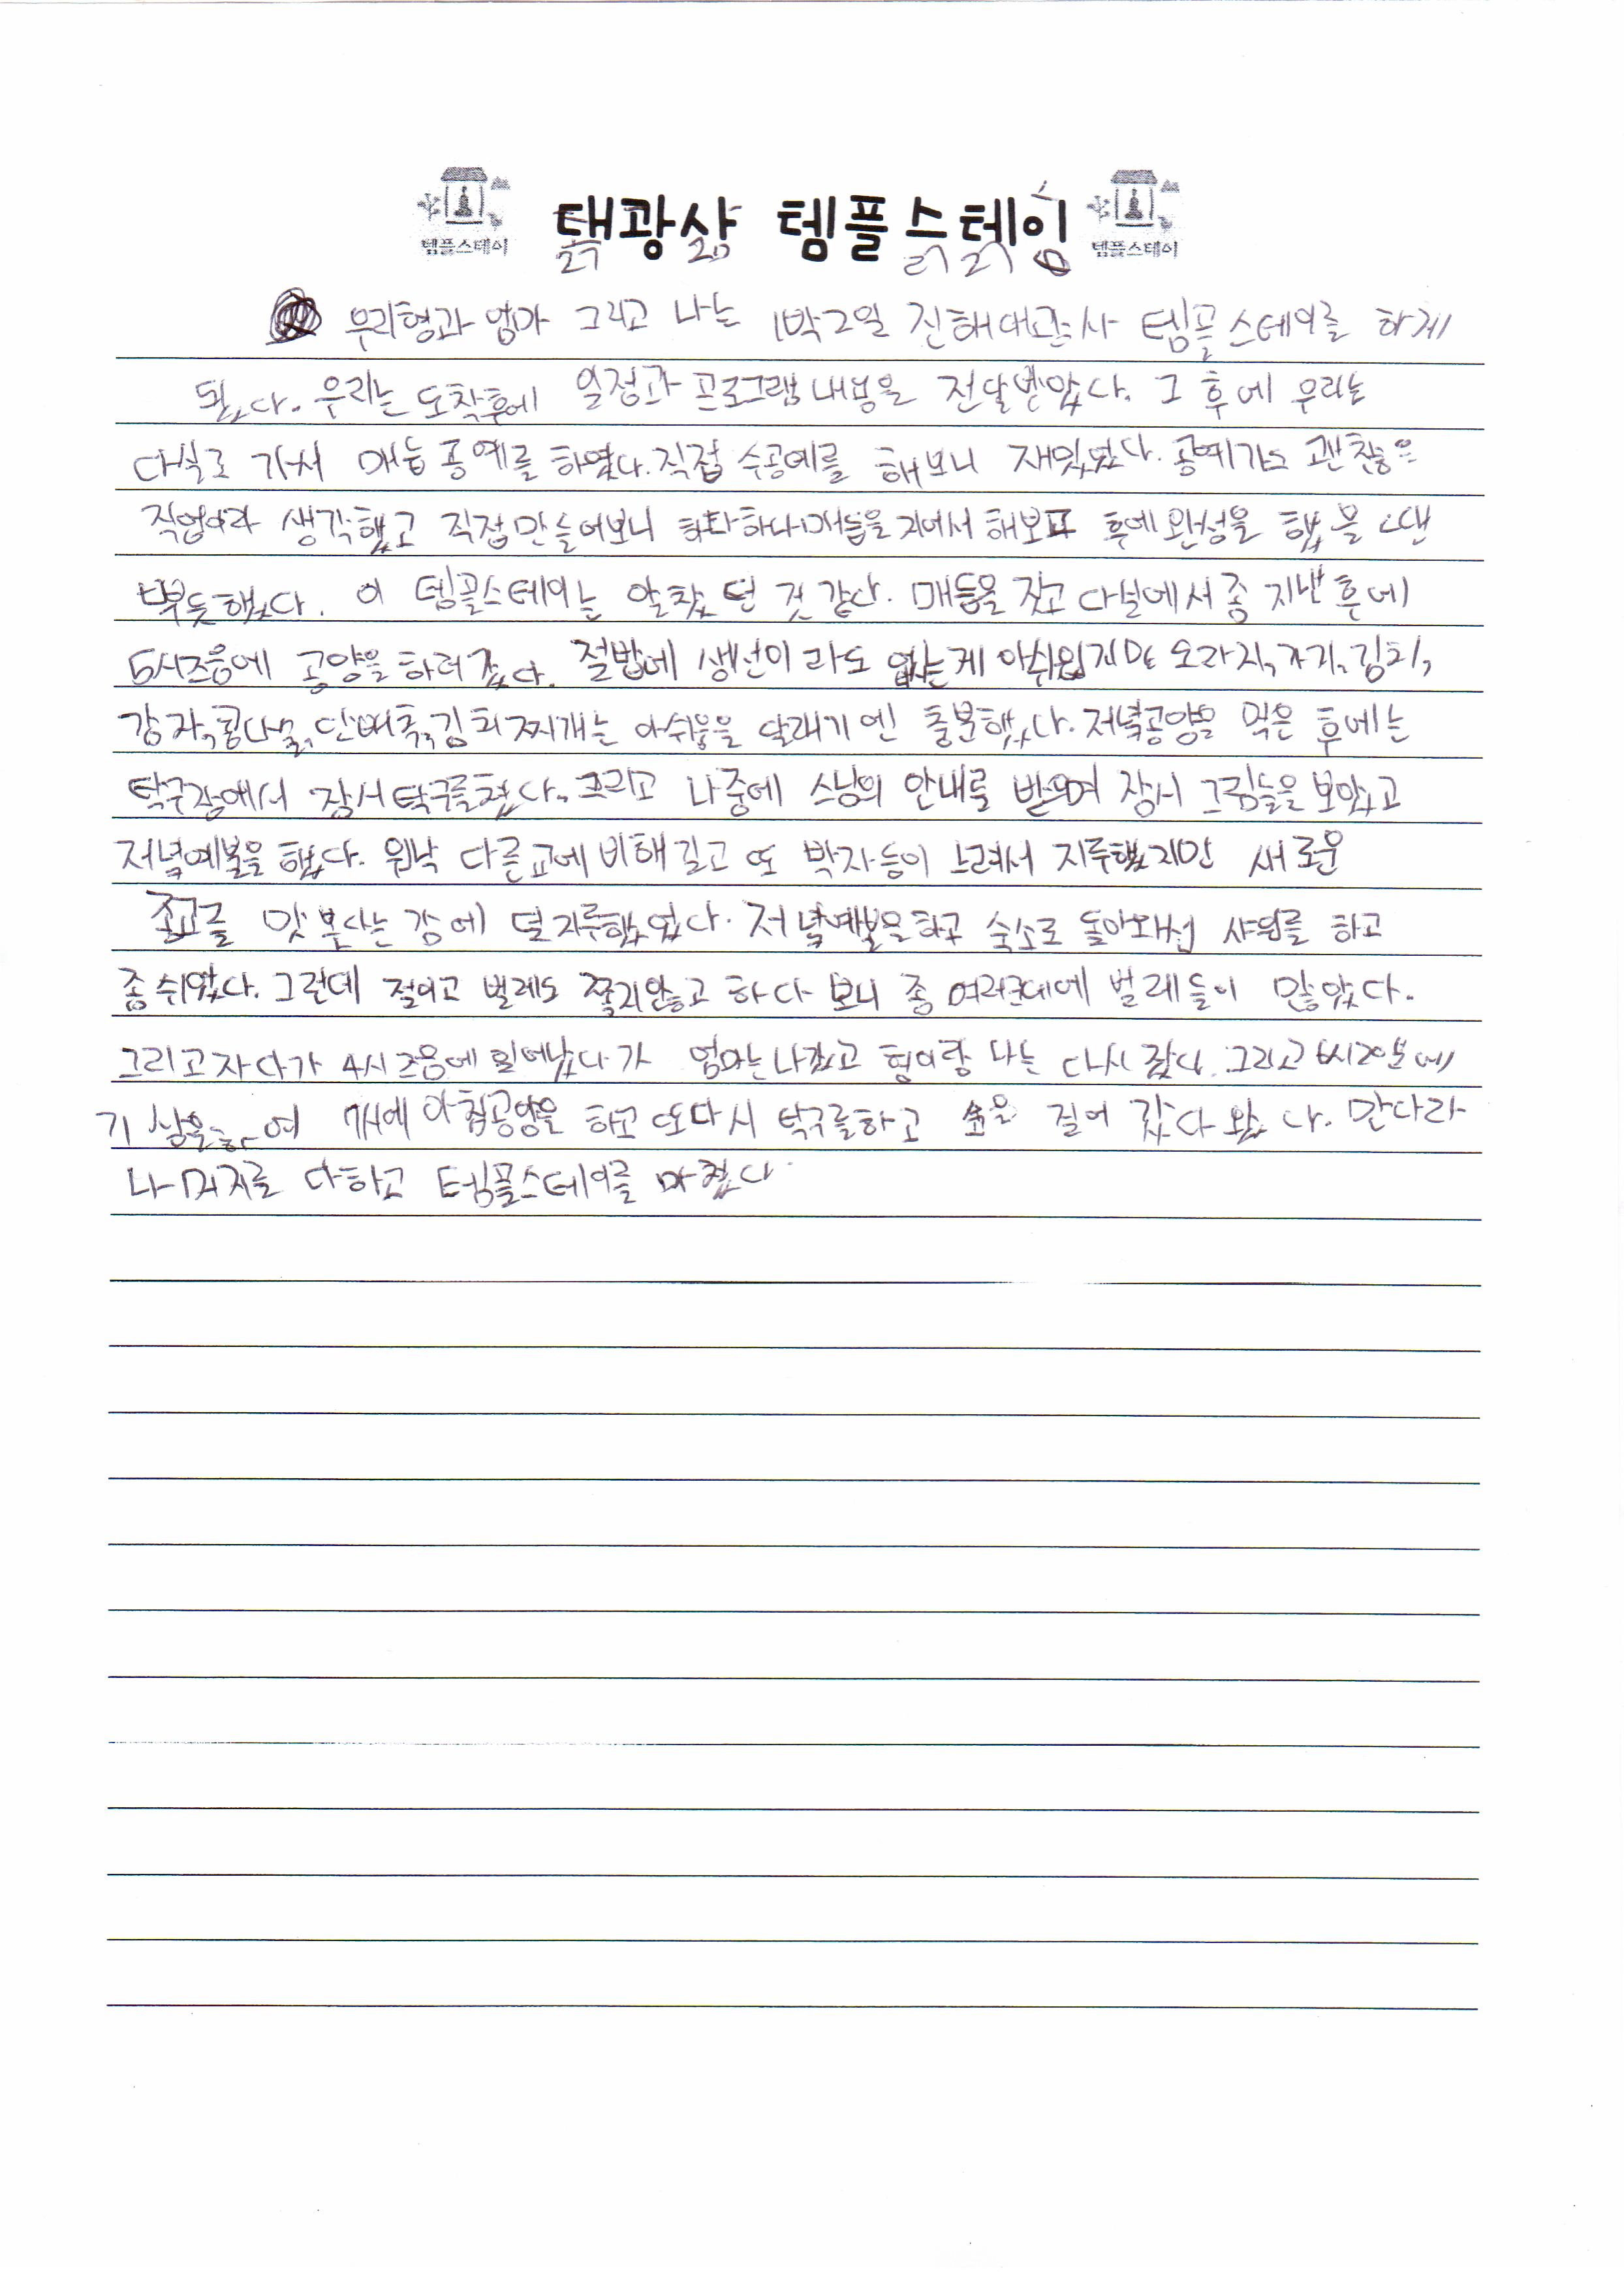 템플스테이 대광사 템플스테이 템플스테이
우리형과 엄마 그리고 나는 1박2일 진해대광사 템플스테이를 하게
됬다. 우리는 도착후에 일정과 프로그램내용을 전달받았다. 그 후에 우리는
다실로 가서 매듭공예를 하였다. 직접 수공예를 해보니 재밌었다. 공예가도 괜찮은
직업이라 생각했고 직접만들어보니 하나 해보고 후에완성을 했을 땐
뿌듯했다. 이 템플스테이는 알찼던 것 같다. 매듭을 짓고 다실에서 좀 지낸 후에
5시즈음에 공양을 하러 갔다. 절밥에 생선이라도 없는게 아쉬웠지만 도라지, 가지, 김치,
감자, 콩나물, 단배추, 김치찌개는 아쉬움을 달래기엔 충분했다. 저녁공양을 먹은 후에는
탁구장에서 잠시탁구를쳤다. 그리고 나중에 스님의 안내를 받으며 잠시 그림들을 보았고
저녁예불을 했다. 워낙 다른교에 비해 길고 또 박자등이 느려서 지루했지만 새로운
종교를 맛본다는 감에 덜지루했었다. 저녁예불을하고 숙소로 돌아와선 샤워를 하고
좀 쉬었다. 그런데 절이고 벌레도 쫓지않고 하다 보니 좀 여러군데에 벌레들이 많았다.
그리고자다가 4시즈음에 일어났다가 엄마는나갔고 형이랑 나는 다시 잤다. 그리고 6시20분에
기상을하여 7시에 아침공양을 하고 또다시 탁구를하고 숲을 걸어 갔다 왔다. 만다라
나머지를 다하고 템플스테이를 마쳤다.